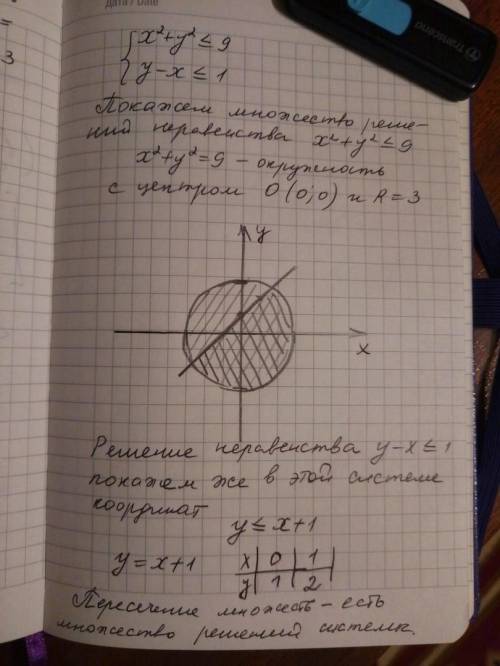 Дата / Date
Transcend
=
3
{x²+y²≤9
{y-x≤1
Покажем множество реше-
ний неравенства x²+y²≤9
x²+y²=9 - окружность
с центром O(0;0) и R=3
y
x
Решение неравенства y-x≤1
покажем же в этой системе
координат
y≤x+1
y=x+1
x | 0 | 1 |
y | 1 | 2 |
Пересечение множеств - есть
множество решений системы.